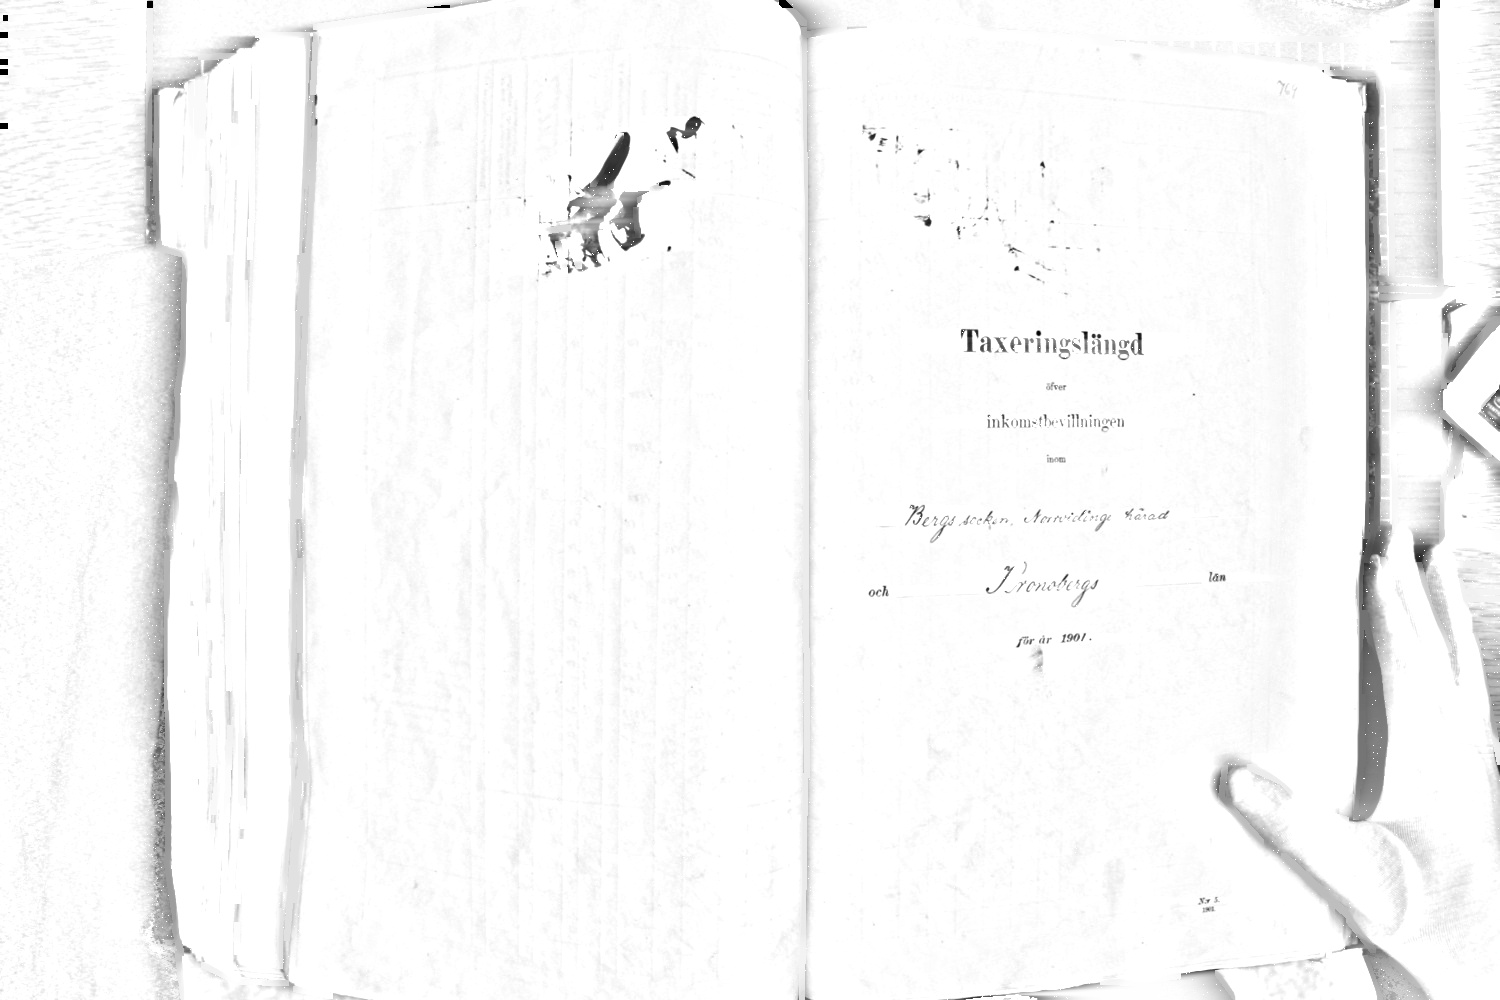 764
Taxeringslängd
öfver
inkomstbevillningen
inom
Bergs socken, Norrvidinge härad
och Kronobergs län
för år 1901.
N:r 5.
1901.